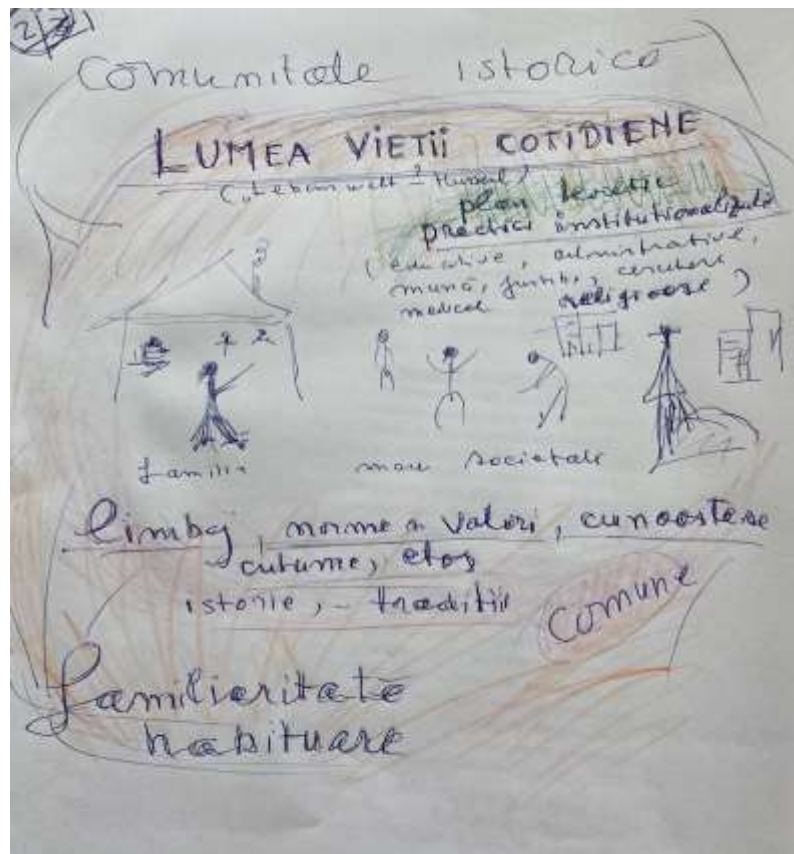 Comunitate istorică
LUMEA VIEȚII COTIDIENE
(Lebenswelt - Husserl)
plan
practici instituționalizate
(educative, administrative,
muncă, justiție,
medical religioase)
familia societale
limbaj, norme valori, cunoaștere
cutume, etos
istorie, - tradiții
Comune
familiaritate
habituare